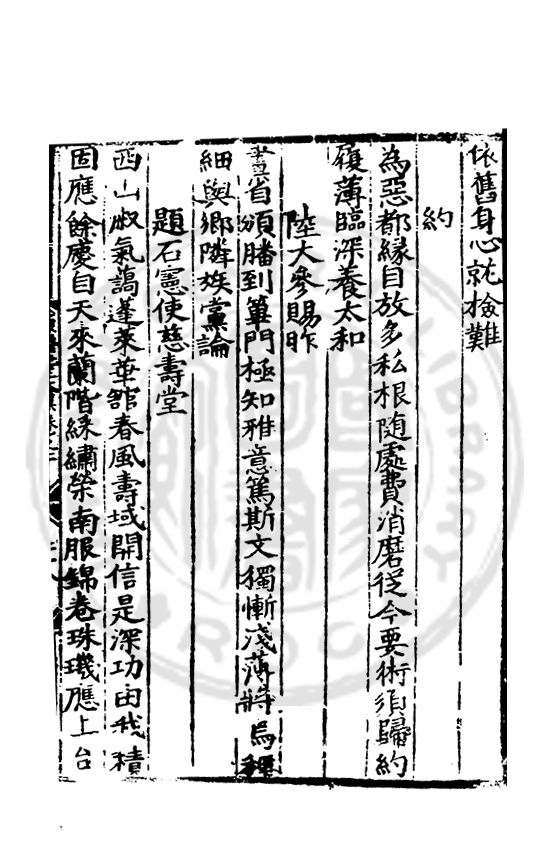 依舊身心就檢難
約
為惡都緣自放多私根随處費消磨從今要術須歸約
履薄臨深養太和
陸大參賜胙
書省頒膰到篳門極知雅意篤斯文獨慚淺薄將烏稱
細與鄉隣族黨論
題石憲使慈壽堂
西山淑氣藹蓬萊華舘春風壽域開信是深功由我積
固應餘慶自天來蘭階綵繡榮南服錦卷珠璣應上台